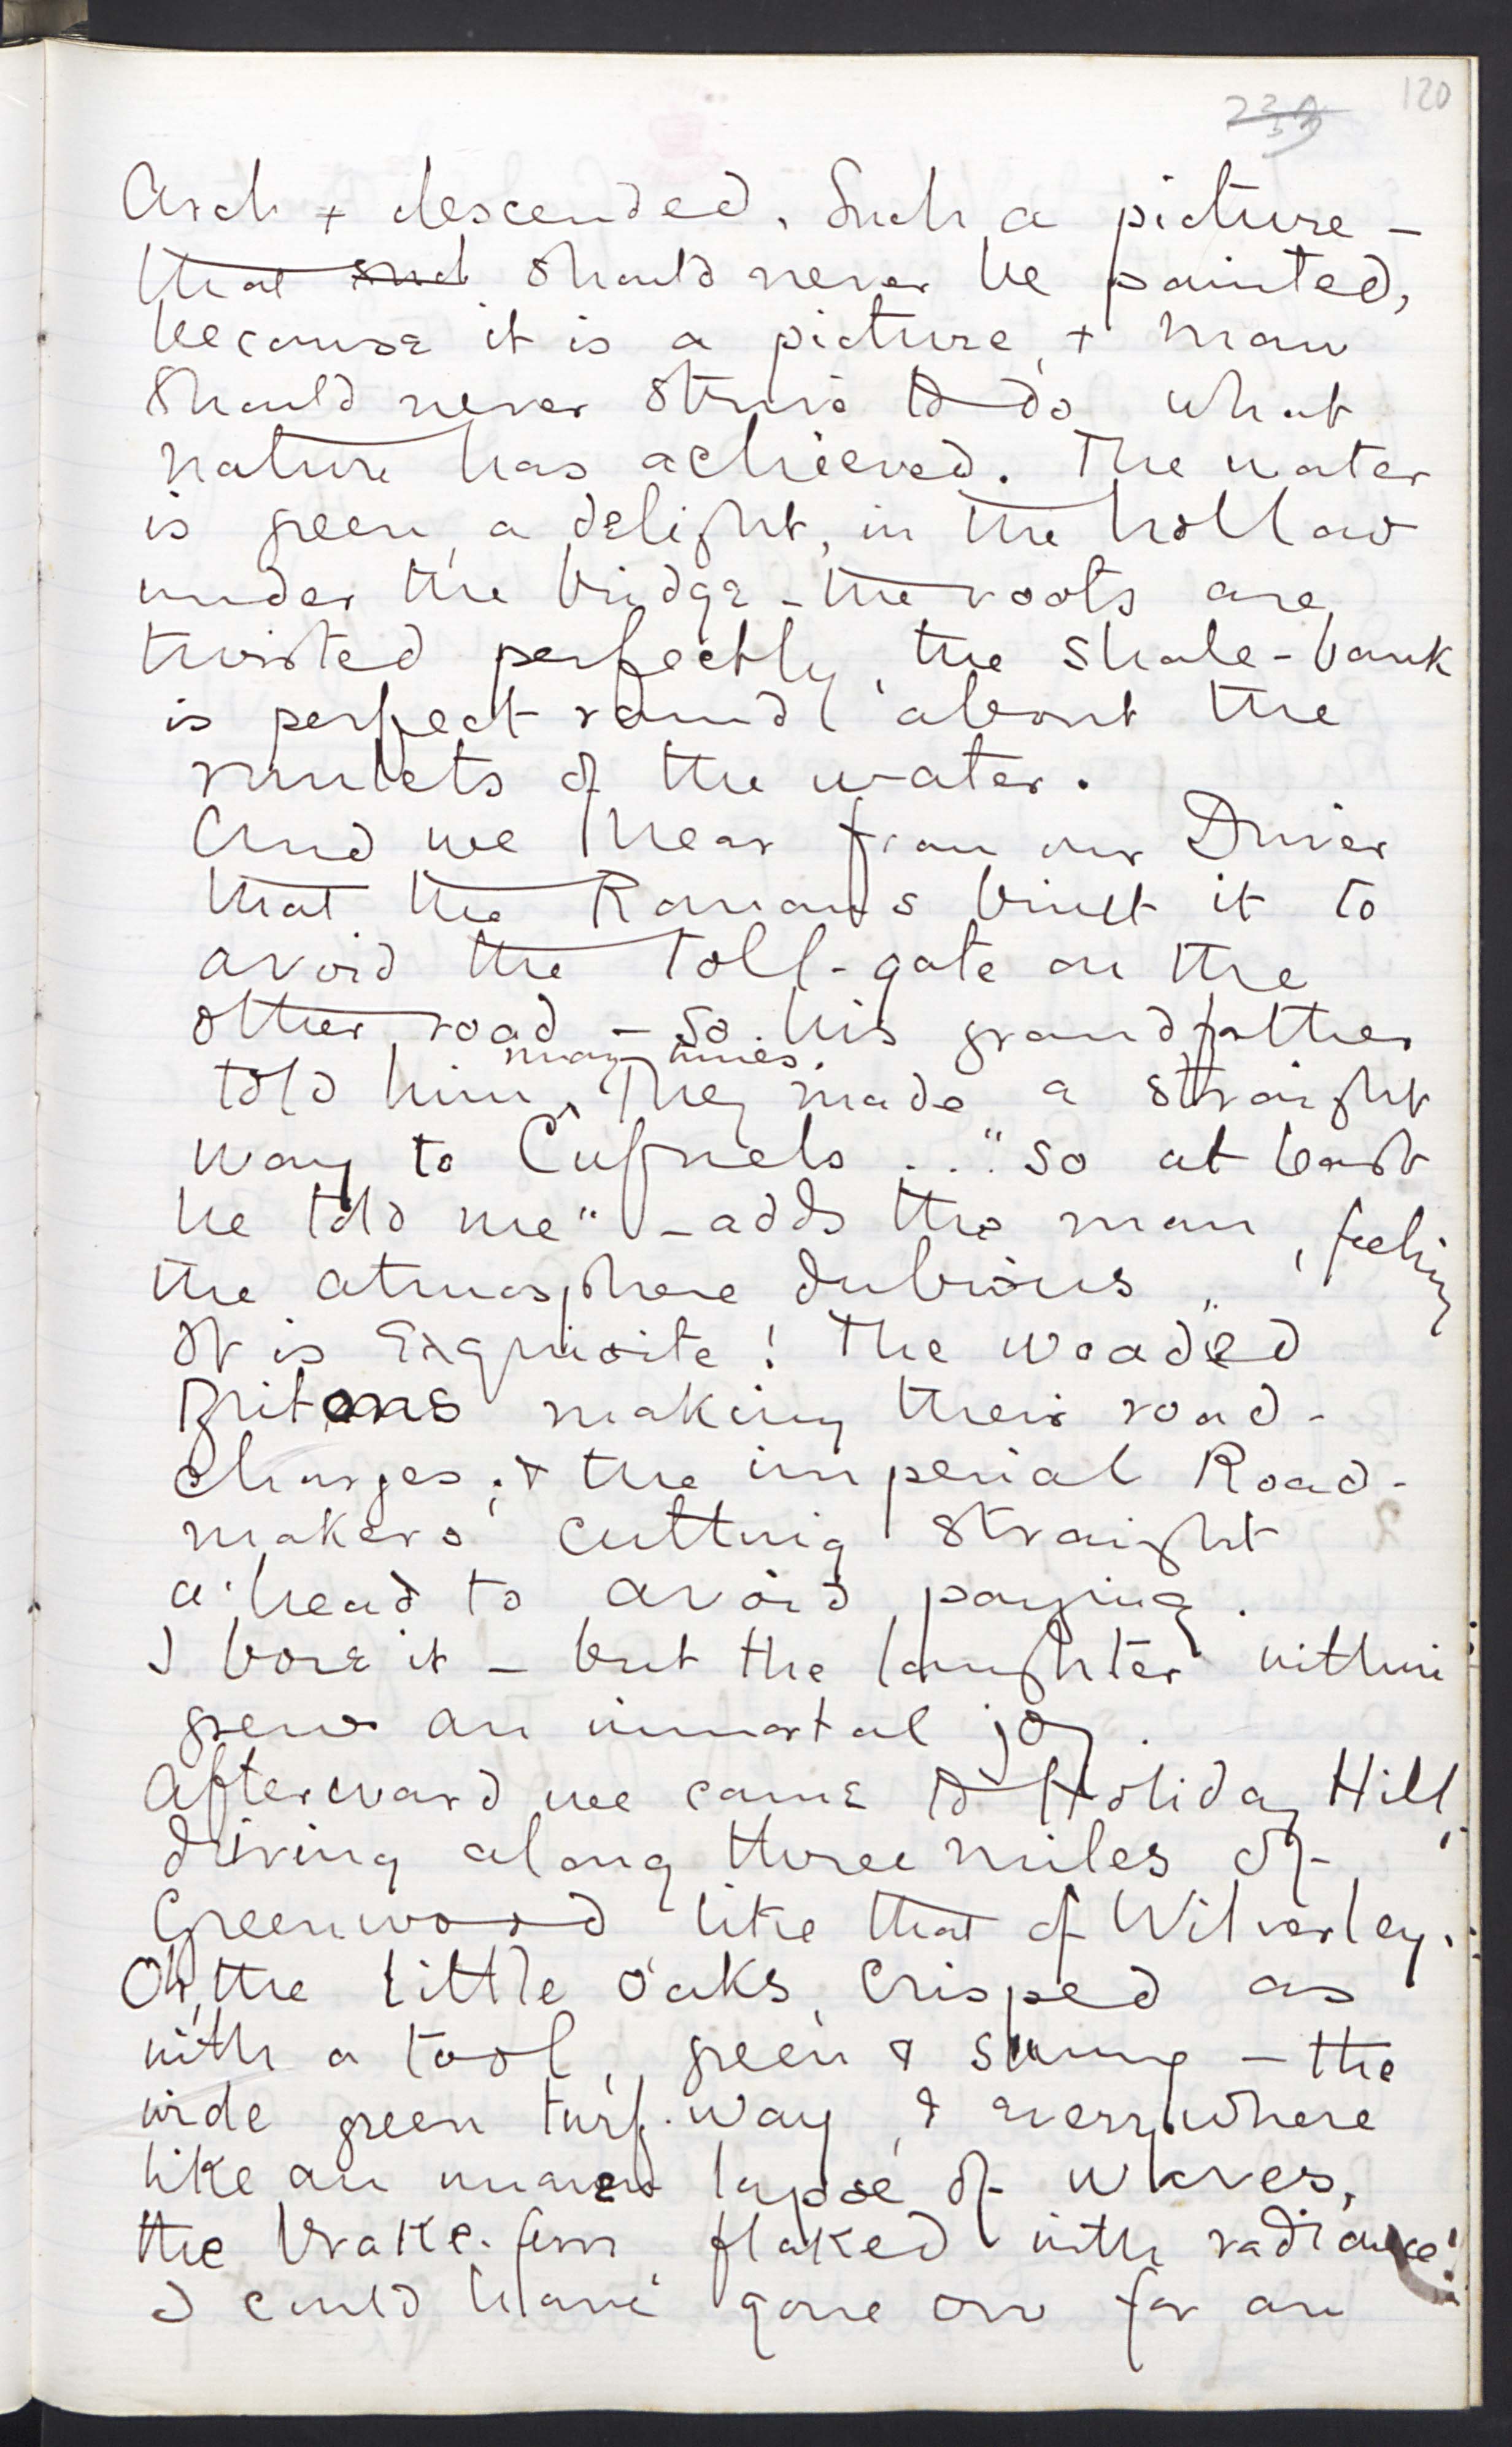 120
Arch + descended. Such a picture –
that such should never be painted,
because it is a picture, + man
should never strive to do what
nature has achieved. The water
is green, a delight, in the hollow
under the bridge – the roots are
twisted perfectly, the shale-bank
is perfect round about the
runlets of the water.
And we hear from our Driver
that the Romans built it to
avoid the toll-gate on the
other road – so his grandfather
many times.
told him ^ They made a straight
way to Cufnels . . "so at least
he told me" – adds the man, feeling
the atmosphere dubious.
It is Exquisite! The woaded
Britons making their road-
charges; & the imperial Road-
makers cutting straight
a-head to avoid paying.
I bore it – but the laughter within
grew an immortal joy.
Afterward we came to Holiday Hill,
driving along three miles of
Greenwood like that of Wilverley.
Oh, the little oaks, crisped as
with a tool, green & – the
wide green turf-way, & everywhere
like an lapse of waves,
the brake-fern flaked with radiance!
I could have gone on for an